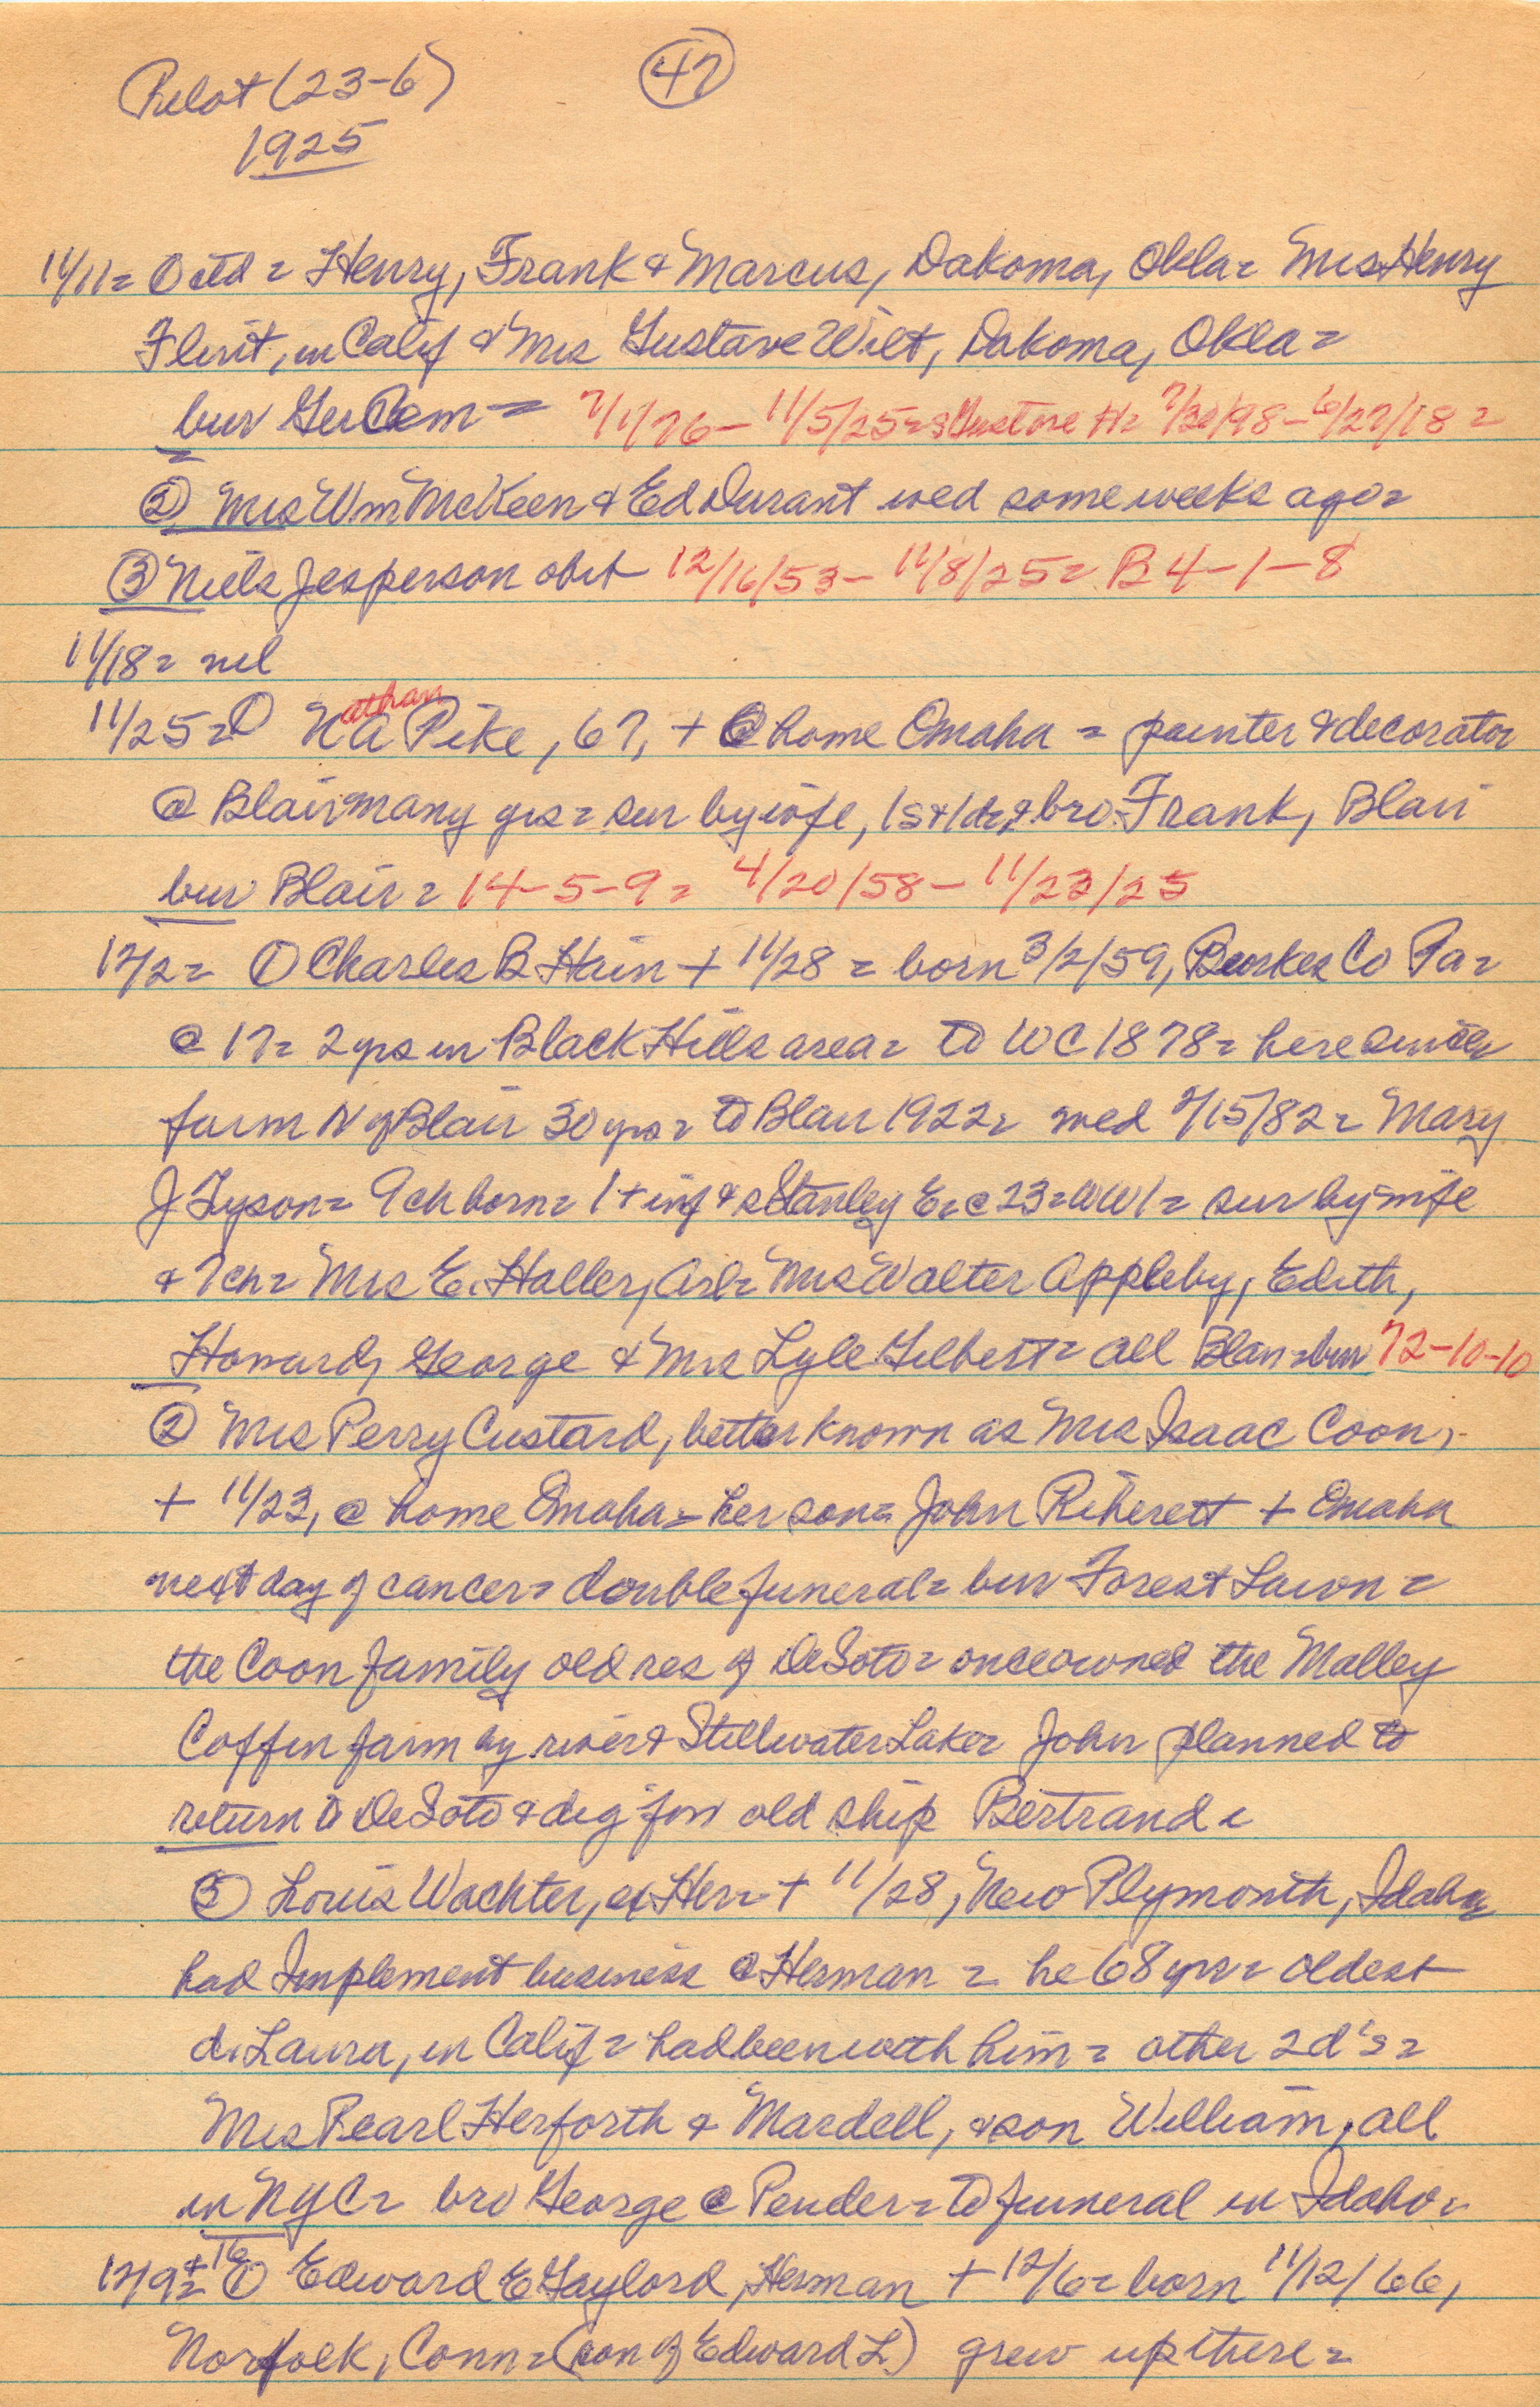 Pilot (23-6) 47
1925
11/11= ctd = Henry, Frank & Marcus, Dakoma, Okla= Mrs Henry
Flint, in Calif & Mrs Gustave Wilt, Dakoma, Okla=
bur Ger Cem = 7/1/76- 11/5/25= Gustave H= 7/30/98-6/27/18=
② Mrs Wm McKeen & Ed Durant wed some weeks ago=
③ Niels Jesperson obit 12/16/53- 11/8/25= B 4-1-8
11/18= nil
11/25= ① N athan A Pike, 67, + @ home Omaha = painter & decorator
@ Blair many yrs= sur by wife, 1s & 1d, & bro Frank, Blair
bur Blair= 14-5-9= 4/20/58- 11/23/25
12/2= ① Charles B Hain + 11/28= born 3/2/59, Burkes Co Pa=
@ 17= 2 yrs in Black Hills area= to WC 1878= here since
farm N of Blair 30 yrs= to Blair 1922= wed 2/15/82= Mary
J Tyson= 9 ch born= 1 + inf & s Stanley E= @ 23= WW1= sur by wife
& 7 ch= Mrs E. Haller, Arl= Mrs Walter Appleby, Edith,
Howard, George & Mrs Lyle Gilbert= all Blair= bur 72-10-10
② Mrs Perry Custard, better known as Mrs Isaac Coon,
+ 11/23, @ home Omaha= her son= John + Omaha
next day of cancer= double funeral= bur Forest Lawn=
the Coon family old res of DeSoto= once owned the Malley
Coffin farm by river & Stillwater Lake= John planned to
return to DeSoto & dig for old ship Bertrand=
③ Louis Wachter, ex Her= + 11/28, New Plymouth, Idaho=
had Implement business @ Herman = he 68 yrs= oldest
d. Laura, in Calif= had been with him= other 2 d's=
Mrs Pearl Herforth & Mardell, & son William, all
in NYC= bro George @ Pender= to funeral in Idaho=
12/9 & 16= ① Edward E Gaylord, Herman + 12/6= born 11/12/66,
Norfolk, Conn= (son of Edward L) grew up there=